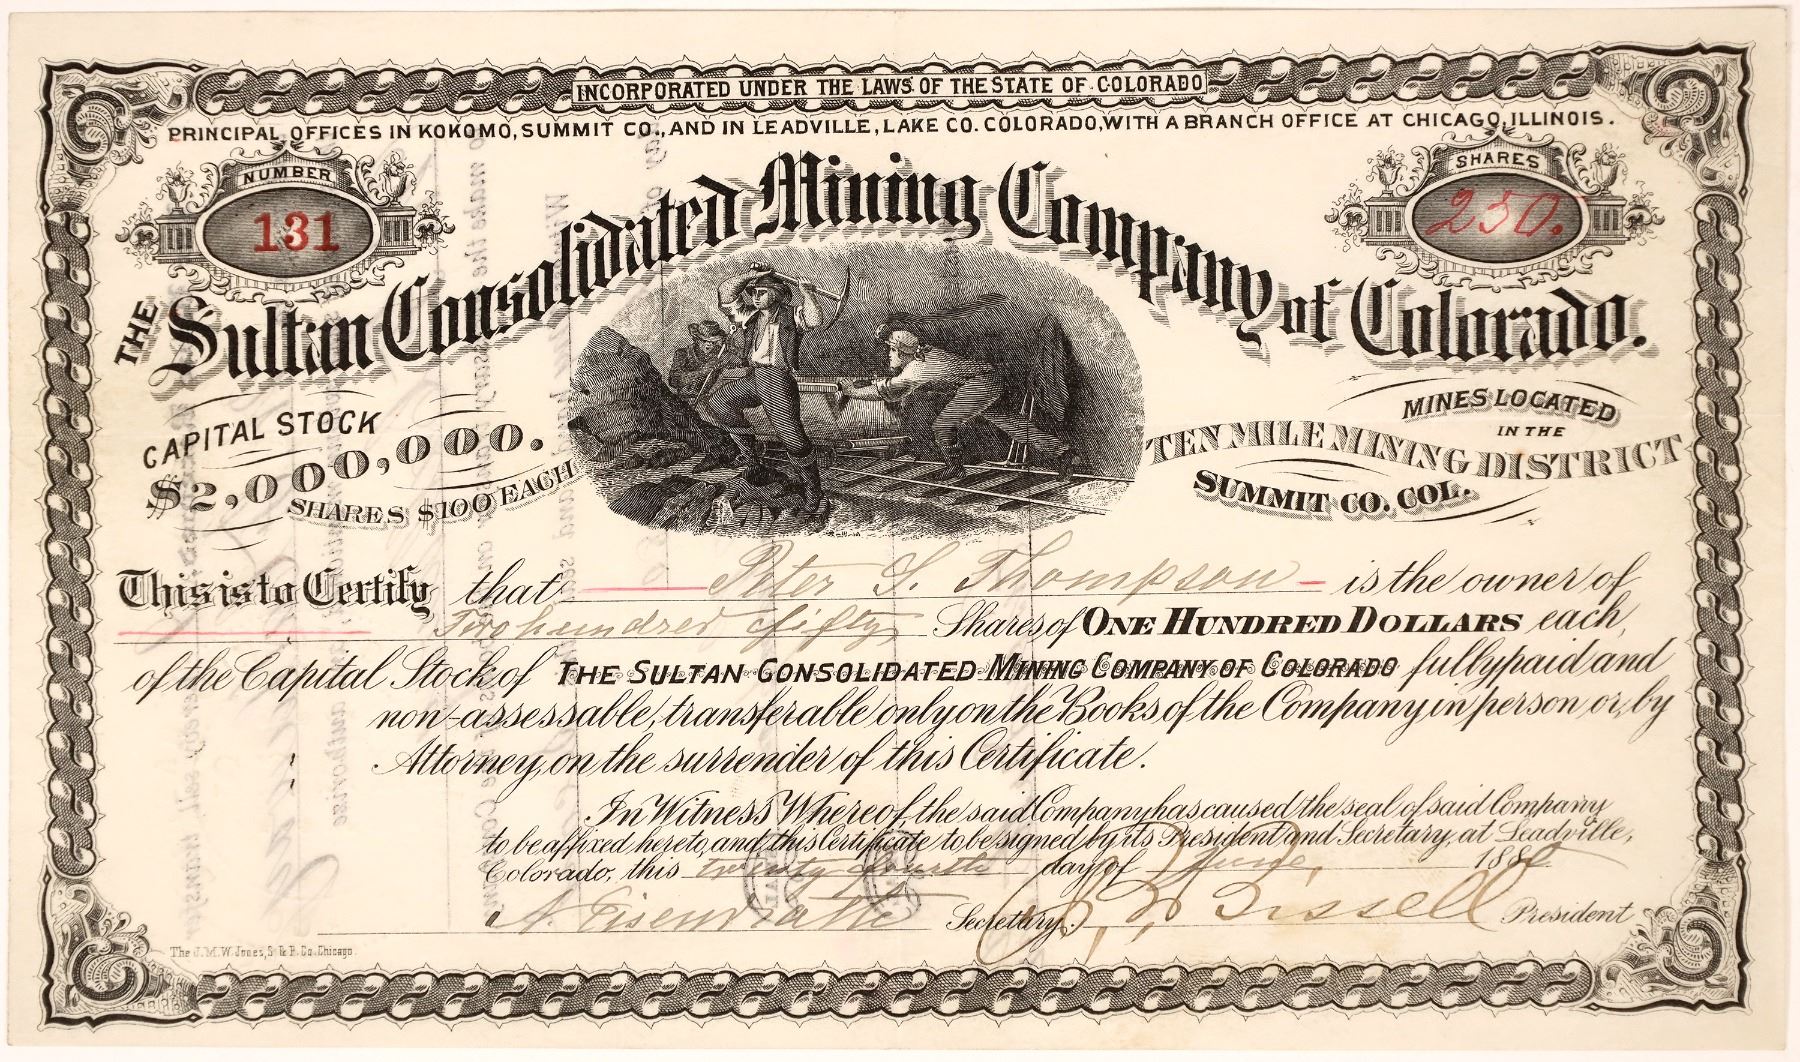 INCORPORATED UNDER THE LAWS OF THE STATE OF COLORADO
PRINCIPAL OFFICES IN KOKOMO, SUMMIT CO., AND IN LEADVILLE, LAKE CO. COLORADO, WITH A BRANCH OFFICE AT CHICAGO, ILLINOIS.
NUMBER
131
SHARES
250.
THE Sultan Consolidated Mining Company of Colorado.
CAPITAL STOCK
$2,000,000.
SHARES $100 EACH
MINES LOCATED
IN THE
TEN MILE MINING DISTRICT
SUMMIT CO. COL.
This is to Certify that Peter S. Thompson is the owner of
Two hundred fifty Shares of ONE HUNDRED DOLLARS each,
of the Capital Stock of THE SULTAN CONSOLIDATED MINING COMPANY OF COLORADO fully paid and
non-assessable, transferable only on the Books of the Company in person or, by
Attorney, on the surrender of this Certificate.
In Witness Whereof, the said Company has caused the seal of said Company
to be affixed hereto, and this Certificate to be signed by its President and Secretary, at Leadville,
Colorado, this twenty fourth day of June, 1880
A. Eisendrath Secretary. Bissell President
The J. M. W. Jones, S. & P. Co. Chicago.